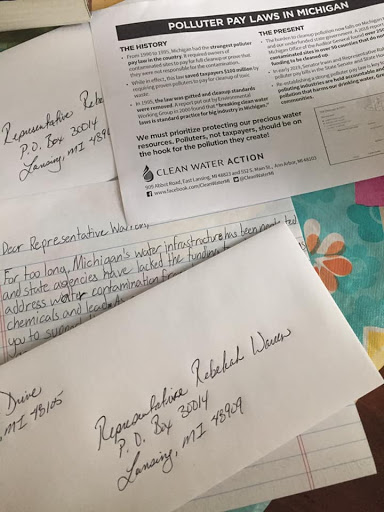 POLLUTER PAY LAWS IN MICHIGAN
THE HISTORY
From 1990 to 1995, Michigan had the strongest polluter
pay law in the country. It required owners of
contaminated sites to pay for full cleanup or prove that
they were not responsible for the contamination.
While in effect, this law saved taxpayers $100 million by
requiring proven polluters to pay for cleanup of toxic
waste.
In 1995, the law was gutted and cleanup standards
were removed. A report put out by Environmental
Working Group in 2000 found that "breaking clean water
laws is standard practice for big industry in Michigan."
THE PRESENT
The burden to cleanup pollution now falls on Michigan
and our underfunded state government. A 2018 report
Michigan Office of the Auditor General found over
contaminated sites in over 50 counties that do not
funding to be cleaned up.
In early 2019, Senator Irwin and Representative
polluter pay bills in the State Senate and State
Re-establishing a strong polluter pay law
polluting industries are held accountable and
pollution that harms our drinking water,
communities.
We must prioritize protecting our precious water
resources. Polluters, not taxpayers, should be on
the hook for the pollution they create!
CLEAN WATER ACTION
909 Abbot Road, East Lansing, MI 48823 and 512 S. Main St., Ann Arbor, MI 48103
www.facebook.com/CleanWaterMI @CleanWaterMI
Representative
P.O. Box 30014
Lansing, MI
Dear Representative Warren,
For too long, Michigan's water infrastructure has been
and state agencies have lacked the funding
address water contamination from
chemicals and lead.
you to support
Drive
, MI 48105
Representative Rebekah Warren
P.O. Box 30014
Lansing, MI 48909